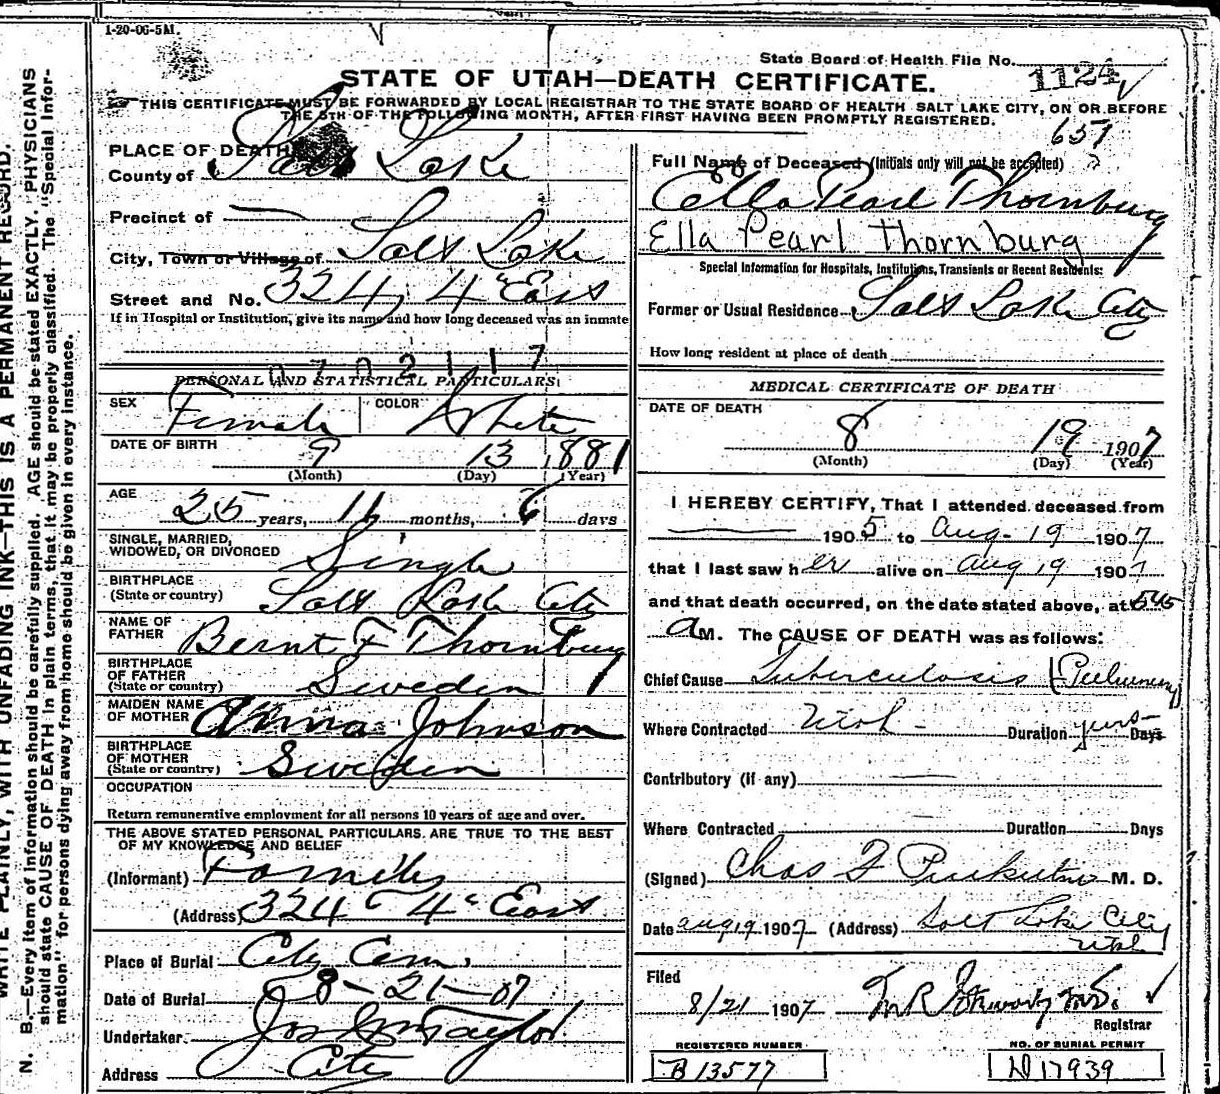 1-20-06-5M.
State Board of Health File No. 1124
STATE OF UTAH—DEATH CERTIFICATE.
THIS CERTIFICATE MUST BE FORWARDED BY LOCAL REGISTRAR TO THE STATE BOARD OF HEALTH SALT LAKE CITY, ON OR BEFORE
THE 5TH OF THE FOLLOWING MONTH, AFTER FIRST HAVING BEEN PROMPTLY REGISTERED.
657
PLACE OF DEATH
County of Salt Lake
Precinct of —
City, Town or Village of Salt Lake
Street and No. 324 4" East
If in Hospital or Institution, give its name and how long deceased was an inmate
0702117
PERSONAL AND STATISTICAL PARTICULARS
SEX Female COLOR White
DATE OF BIRTH 9 13 1881
(Month) (Day) (Year)
AGE
25 years, 11 months, 6 days
SINGLE, MARRIED,
WIDOWED, OR DIVORCED Single
BIRTHPLACE
(State or country) Salt Lake City
NAME OF
FATHER Bernt F Thornburg
BIRTHPLACE
OF FATHER
(State or country) Sweden
MAIDEN NAME
OF MOTHER Anna Johnson
BIRTHPLACE
OF MOTHER
(State or country) Sweden
OCCUPATION
Return remunerative employment for all persons 10 years of age and over.
THE ABOVE STATED PERSONAL PARTICULARS ARE TRUE TO THE BEST
OF MY KNOWLEDGE AND BELIEF
(Informant) Family
(Address) 324 - 4" East
Place of Burial City Cem.
Date of Burial 8-21-07
Undertaker Jos Wm Taylor
Address City
Full Name of Deceased (Initials only will not be accepted)
Ella Pearl Thornburg
Ella Pearl Thornburg
Special Information for Hospitals, Institutions, Transients or Recent Residents:
Former or Usual Residence Salt Lake City
How long resident at place of death
MEDICAL CERTIFICATE OF DEATH
DATE OF DEATH
8 19 1907
(Month) (Day) (Year)
I HEREBY CERTIFY, That I attended deceased from
1905 to Aug. 19 1907
that I last saw her alive on Aug 19 1907
and that death occurred, on the date stated above, at 545
A M. The CAUSE OF DEATH was as follows:
Chief Cause Tuberculosis (Pulmonary)
Where Contracted Utah - Duration years Days
Contributory (if any) —
Where Contracted Duration Days
(Signed) Chas F M. D.
Date Aug 19 1907 (Address) Salt Lake City
Utah
Filed
8/21 1907 M R M.D.
Registrar
REGISTERED NUMBER
B 13577
NO. OF BURIAL PERMIT
D 17939
WRITE PLAINLY, WITH UNFADING INK—THIS IS A PERMANENT RECORD.
N. B.—Every item of information should be carefully supplied. AGE should be stated EXACTLY. PHYSICIANS
should state CAUSE OF DEATH in plain terms, that it may be properly classified. The "Special Infor-
mation" for persons dying away from home should be given in every instance.